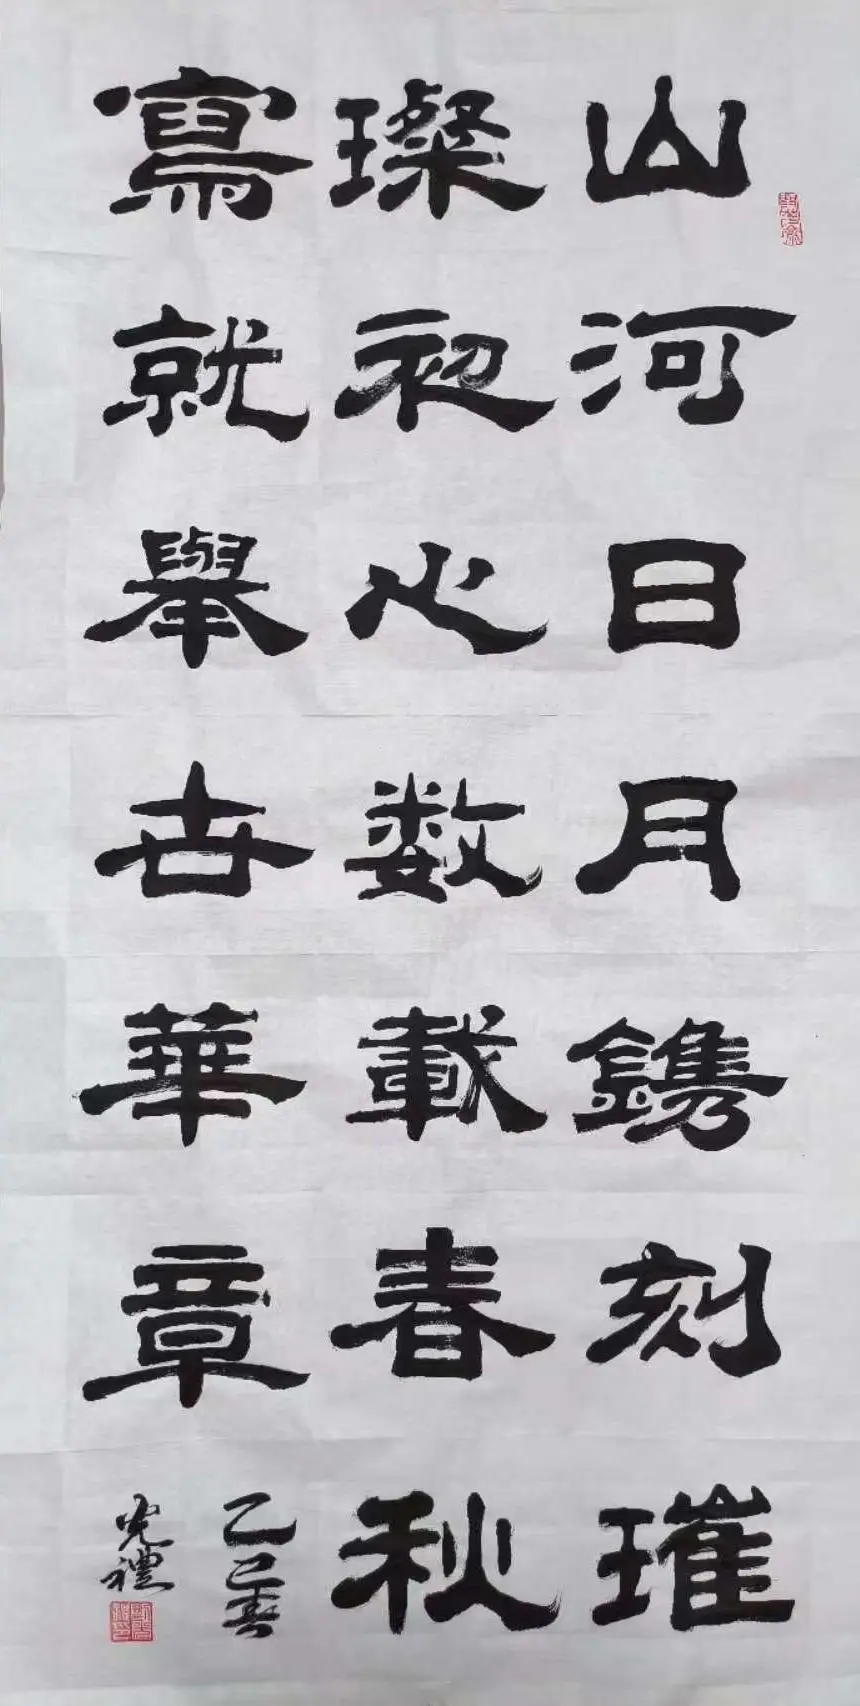 山河日月鐫刻璀
璨初心数載春秋
寫就舉世華章
乙巳春
光禮